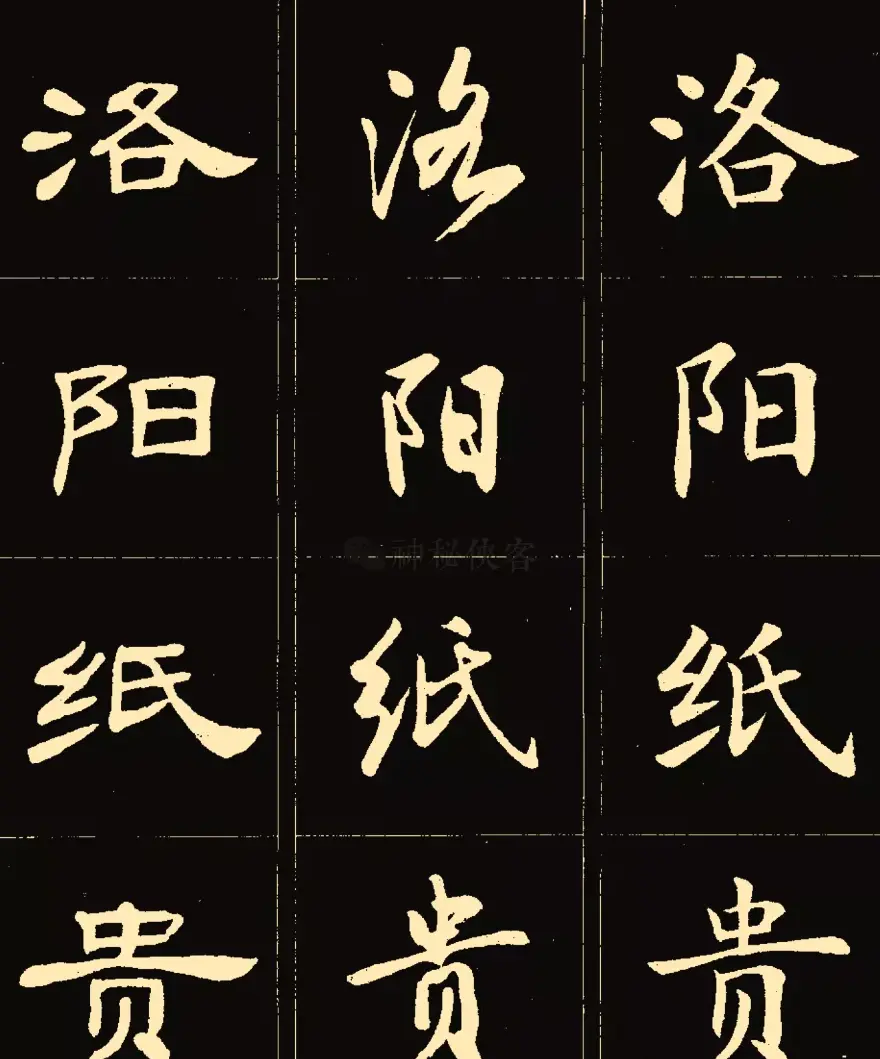 洛 洛 洛
阳 阳 阳
神秘侠客
纸 纸 纸
贵 贵 贵